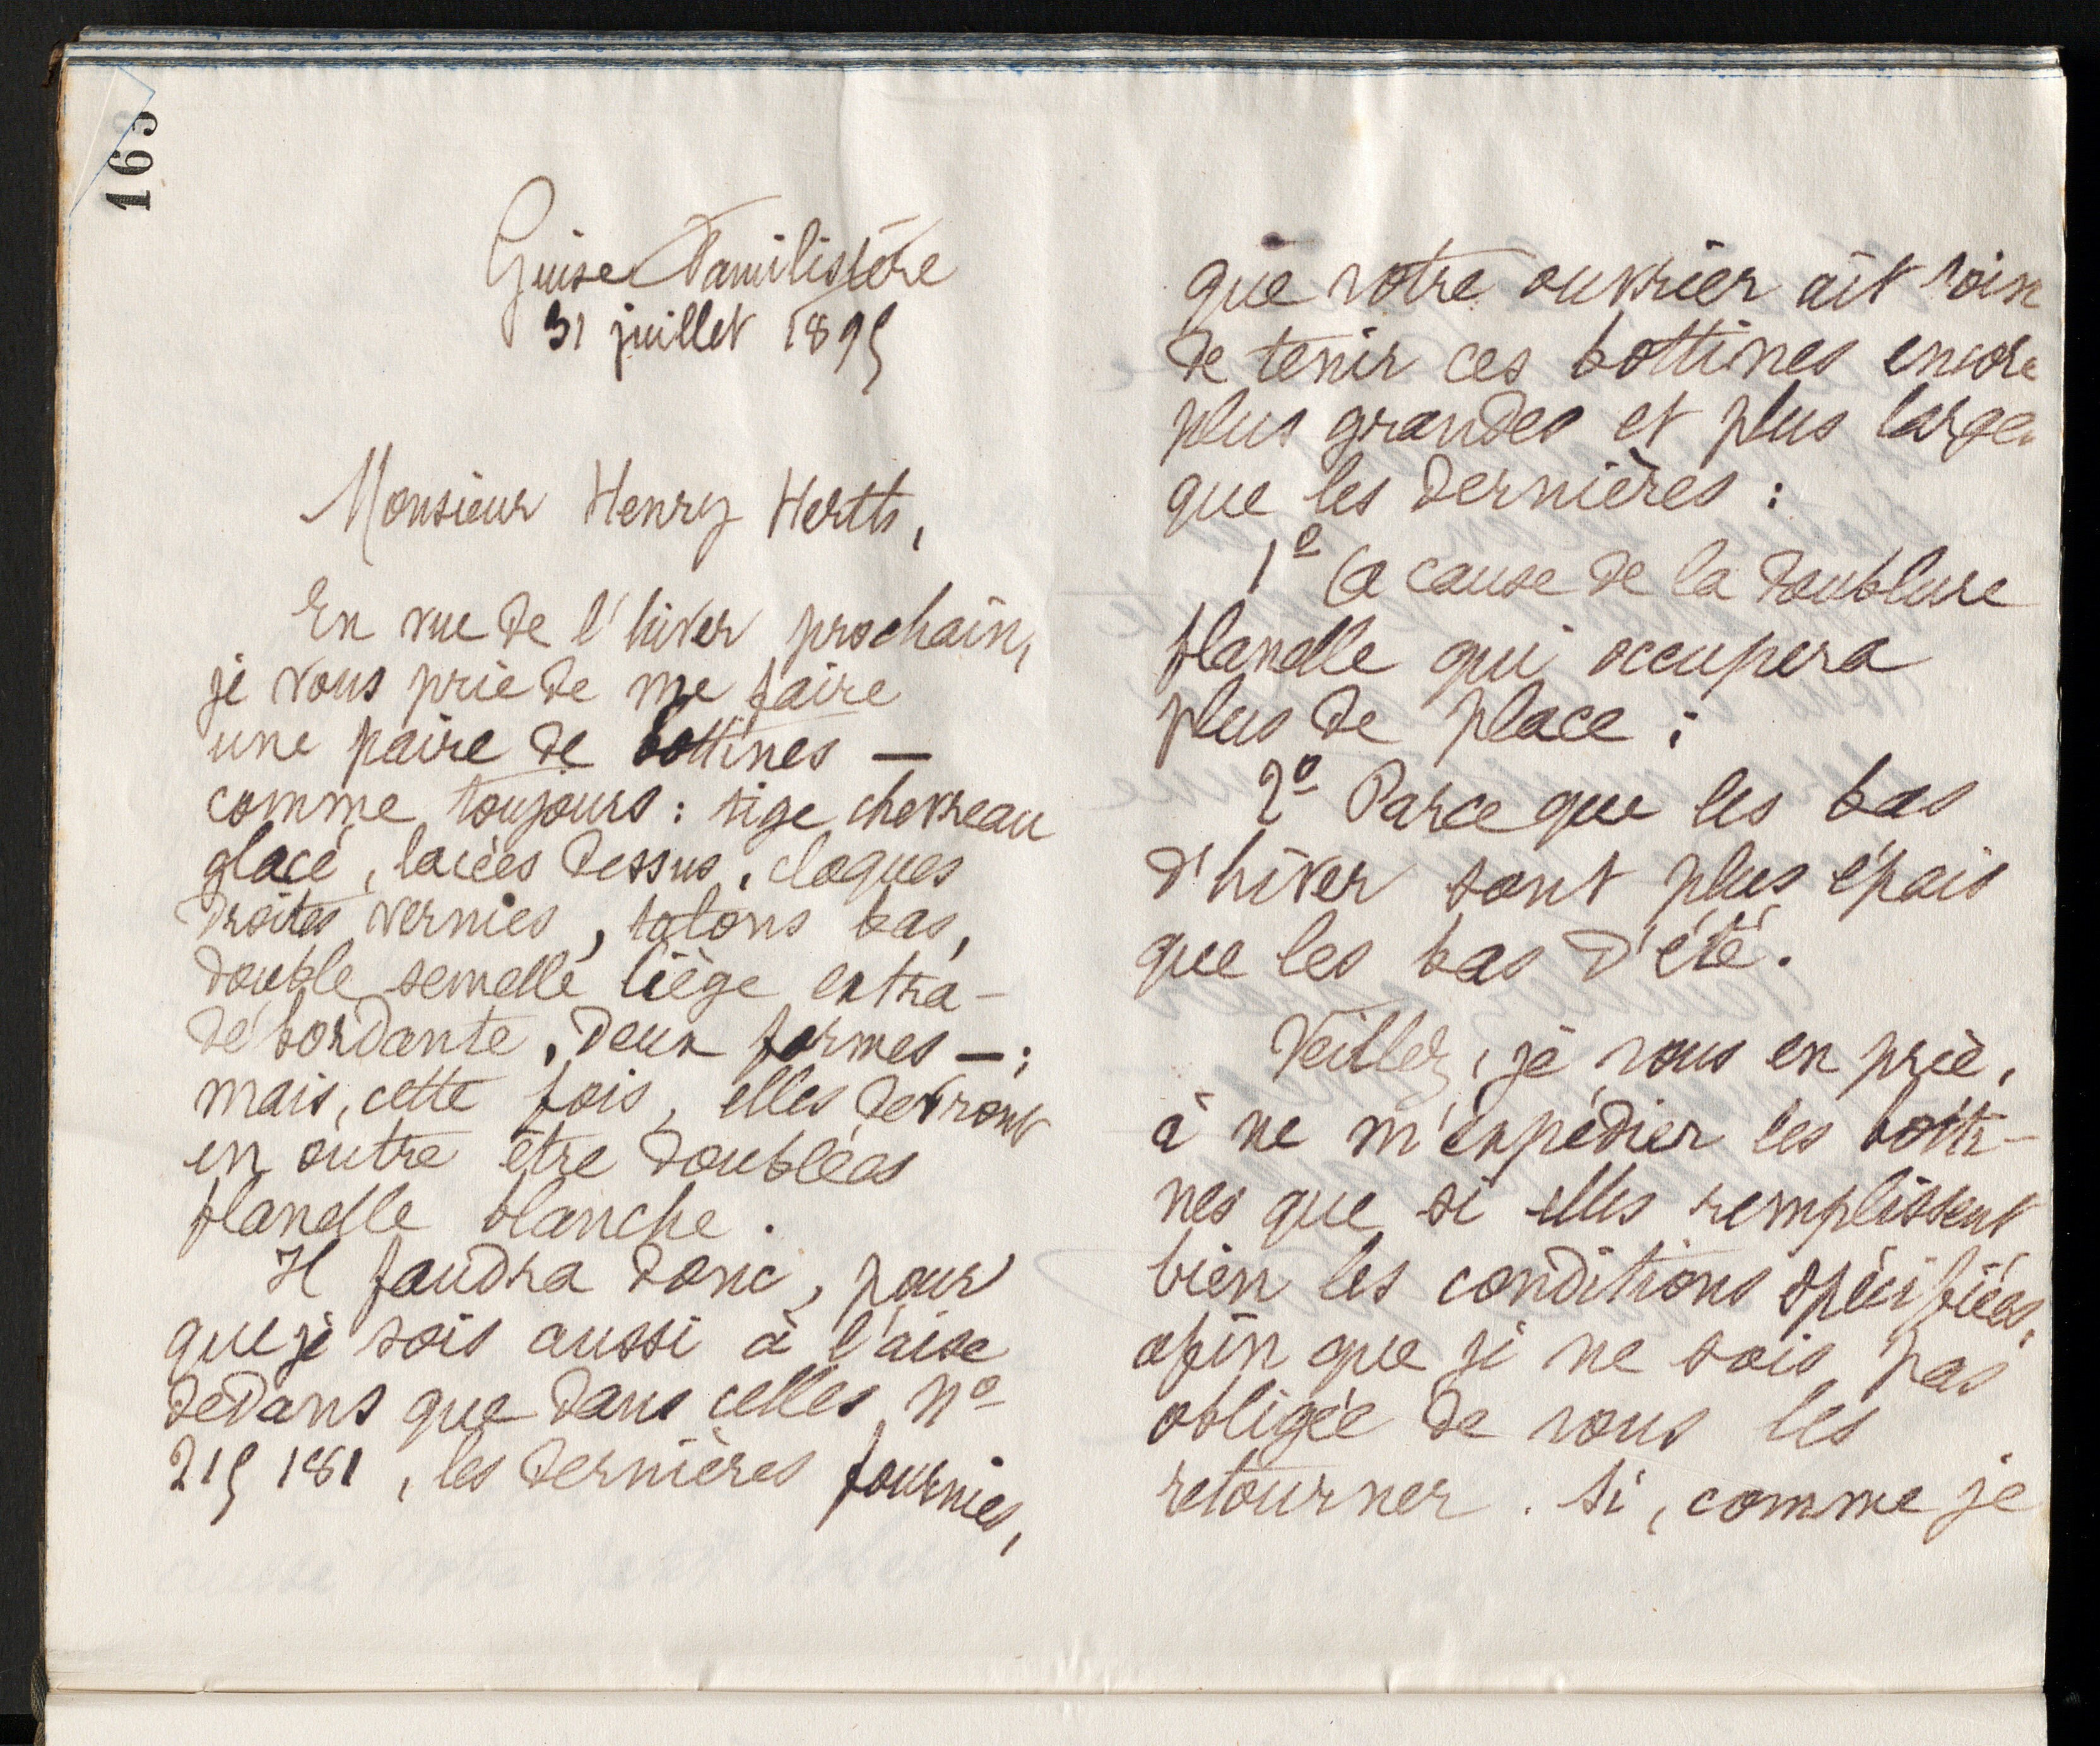 165
Guise Familistère
31 juillet 1895
Monsieur Henry Herth,
En vue de l'hiver prochain,
je vous prie de me faire
une paire de bottines —
comme toujours : tige chevreau
glacé, lacées dessus, claques
droites vernies, talons bas,
double semelle liège extra-
débordante, deux formes — ;
mais, cette fois, elles devront
en outre être doublées
flanelle blanche.
Il faudra donc, pour
que je sois aussi à l'aise
dedans que dans celles, nº
215 181, les dernières fournies,
que votre ouvrier ait soin
de tenir ces bottines encore
plus grandes et plus larges
que les dernières :
1º A cause de la doublure
flanelle qui occupera
plus de place ;
2º Parce que les bas
d'hiver sont plus épais
que les bas d'été.
Veillez, je vous en prie,
à ne m'expédier les botti-
nes que si elles remplissent
bien les conditions spécifiées,
afin que je ne sois pas
obligée de vous les
retourner. Si, comme je